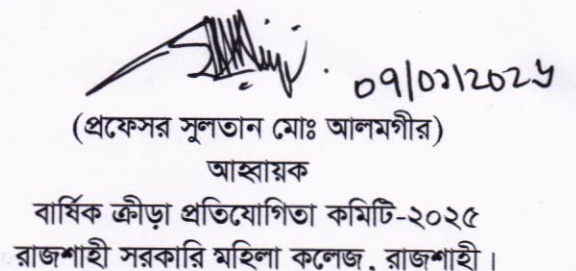 ০৭/০১/২০২৫
(প্রফেসর সুলতান মোঃ আলমগীর)
আহ্বায়ক
বার্ষিক ক্রীড়া প্রতিযোগিতা কমিটি-২০২৫
রাজশাহী সরকারি মহিলা কলেজ, রাজশাহী।